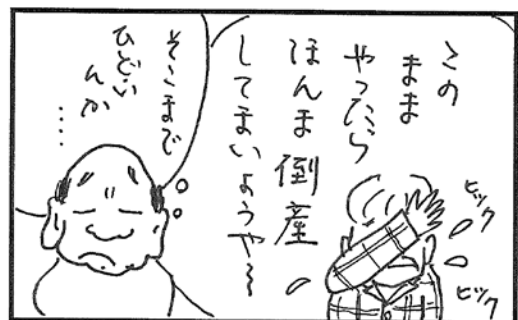 このまま
やったら
ほんま倒産
してまいようや〜
ヒック
ヒック
そこまで
ひどい
んか
……